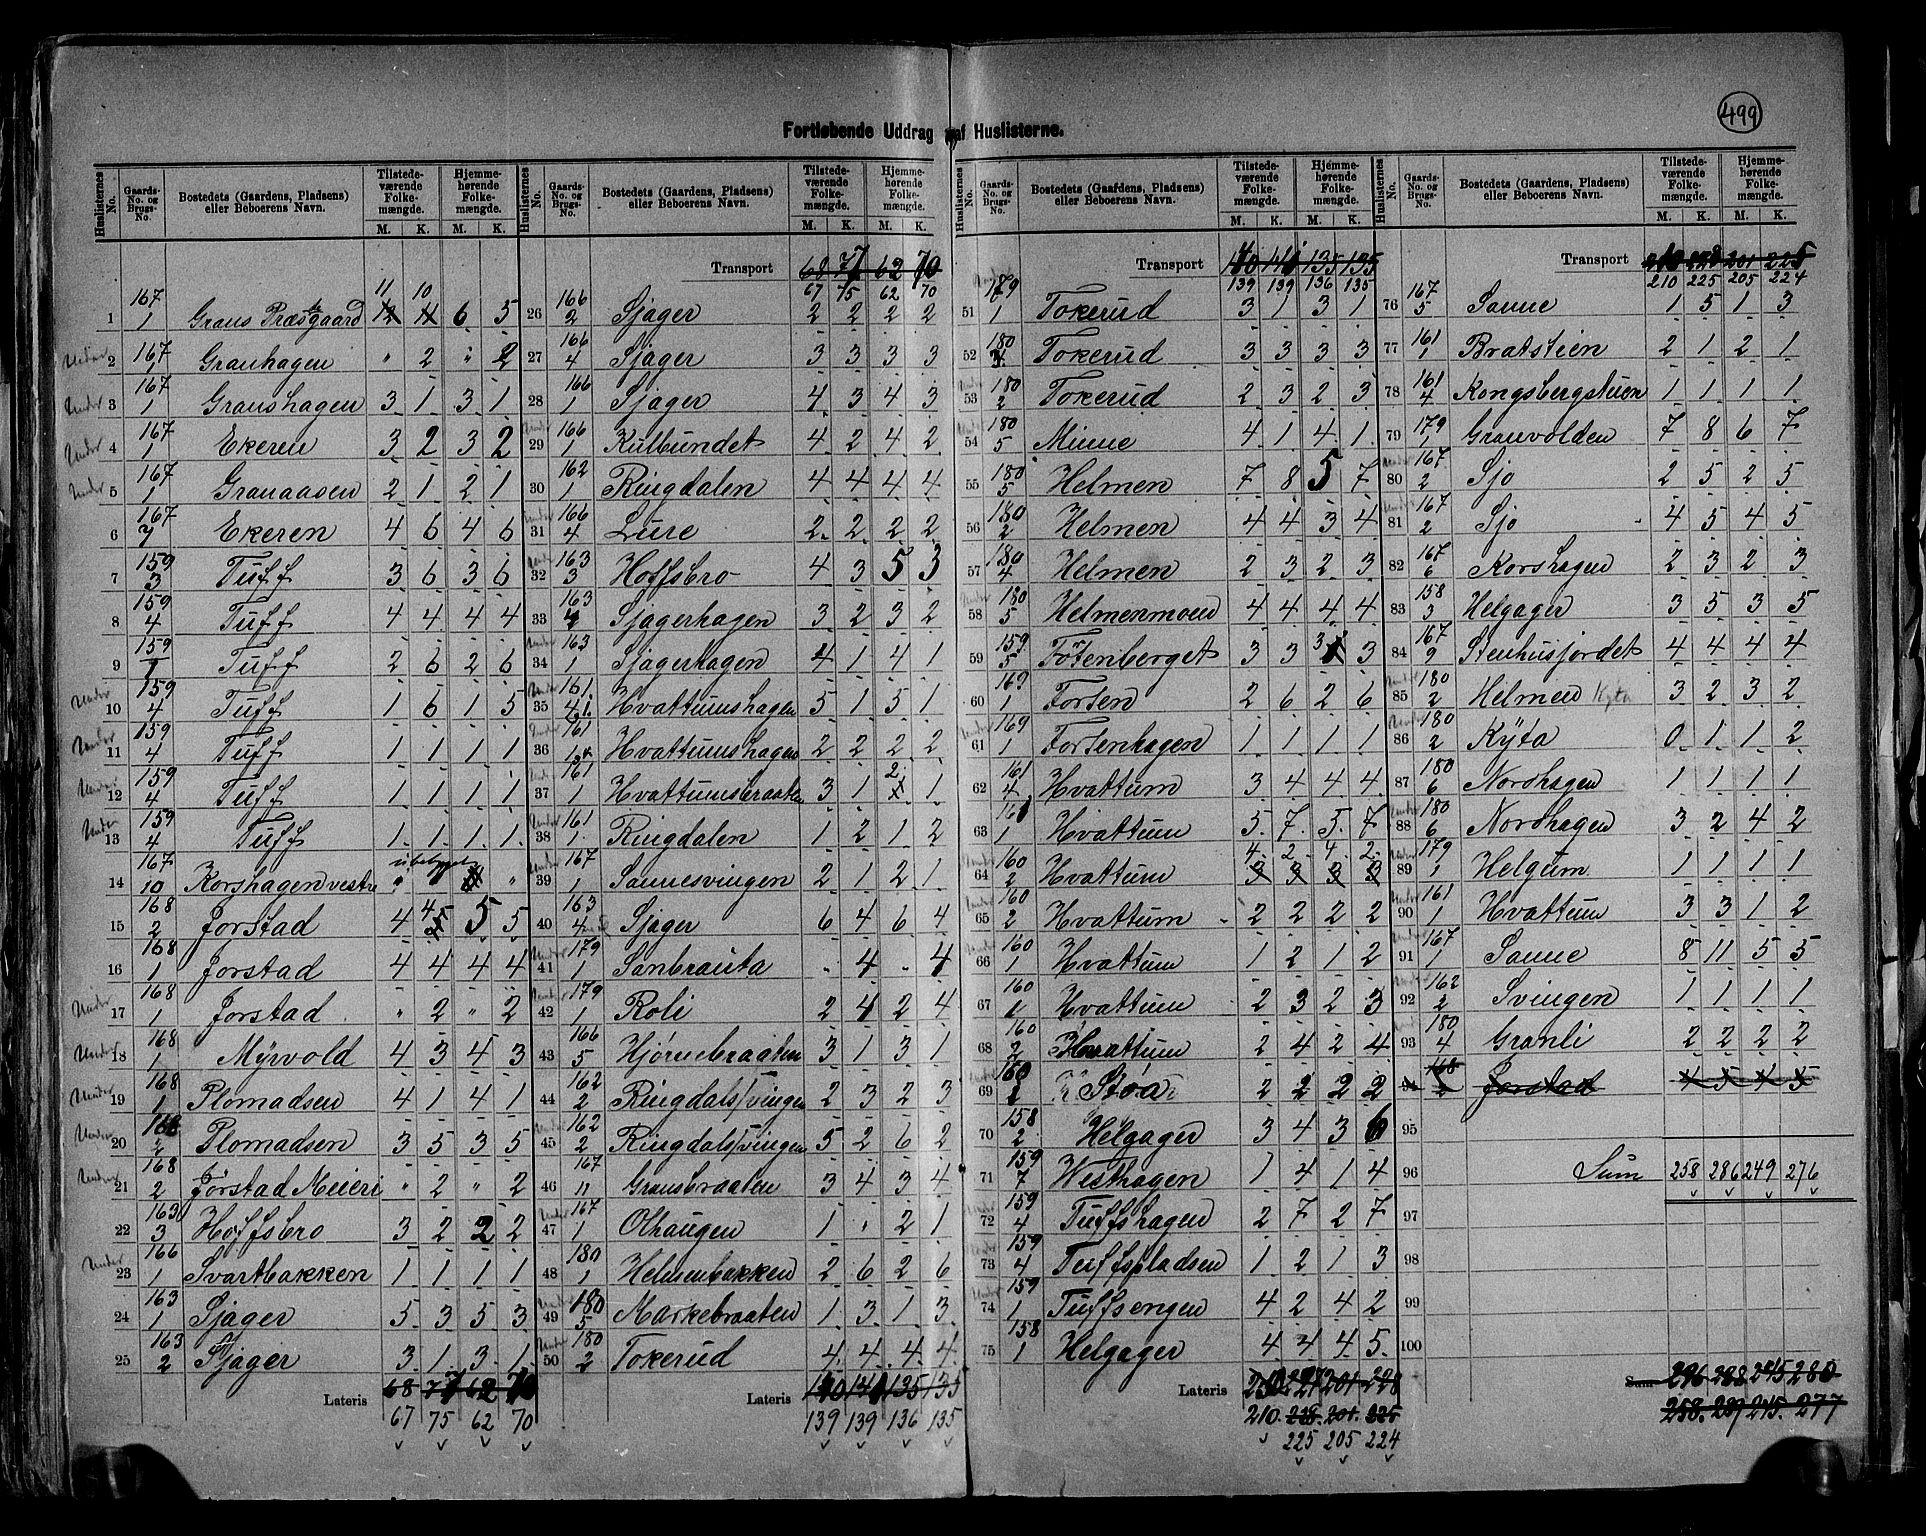 499
Fortløbende Uddrag af Huslisterne.
Huslisternes No. | Gaards-No. og Brugs-No. | Bostedets (Gaardens, Pladsens) eller Beboerens Navn. | Tilstedeværende Folkemængde. M. K. | Hjemmehørende Folkemængde. M. K.
1 167/1 Grans Præstegaard 11 10 6 5
Under 2 167/1 Granhagen " 2 " 2
Under 3 167/1 Granshagen 3 1 3 1
Under 4 167/1 Ekeren 3 2 3 2
Under 5 167/1 Granaasen 2 1 2 1
6 167/7 Ekeren 4 6 4 6
7 159/3 Tuff 3 6 3 6
8 159/4 Tuff 4 4 4 4
9 159/1 Tuff 2 6 2 6
Under 10 159/4 Tuff 1 6 1 5
Under 11 159/4 Tuff 1 1 1 1
Under 12 159/4 Tuff 1 1 1 1
Under 13 159/4 Tuff 1 1 1 1
14 167/10 Korshagen vestre ubebygget
15 168/2 Jorstad 4 4 5 5
16 168/1 Jorstad 4 4 4 4
Under 17 168/1 Jorstad " 2 " 2
Under 18 168/1 Myrvold 4 3 4 3
Under 19 168/1 Plomadsen 4 1 4 1
Under 20 168/2 Plomadsen 3 5 3 5
Under 21 168/2 Jørstad Meieri " 2 " 2
22 163/3 Hoffsbro 3 2 2 2
Under 23 166/1 Svartbakken 1 1 1 1
24 163/1 Sjager 5 3 5 3
25 163/2 Sjager 3 1 3 1
Lateris 68 77 62 70
67 75 62 70
Huslisternes No. | Gaards-No. og Brugs-No. | Bostedets (Gaardens, Pladsens) eller Beboerens Navn. | Tilstedeværende Folkemængde. M. K. | Hjemmehørende Folkemængde. M. K.
Transport 68 77 62 70
67 75 62 70
26 166/2 Sjager 2 2 2 2
27 166/4 Sjager 3 3 3 3
28 166/1 Sjager 4 3 4 3
Under 29 166/1 Kulbundet 4 2 4 2
30 162/1 Ringdalen 4 4 4 4
Under 31 166/4 Lure 2 2 2 2
Under 32 163/3 Hoffsbro 4 3 5 3
33 163/4 Sjagerhagen 3 2 3 2
Under 34 163/1 Sjagerhagen 4 1 4 1
Under 35 161 Hvattumshagen 5 1 5 1
Under 36 161 Hvattumshagen 2 2 2 2
Under 37 161/1 Hvattumsbraaten 3 1 2 1
Under 38 161/1 Ringdalen 1 2 1 2
Under 39 167/1 Sannesvingen 2 1 2 1
40 163/4 Sjager 6 4 6 4
Under 41 179/1 Sanbrauta " 4 " 4
Under 42 179/1 Roli 2 4 2 4
43 166/5 Hjørnebraaten 3 1 3 1
Under 44 162/2 Ringdalssvingen 2 3 2 3
Under 45 162/2 Ringdalssvingen 5 2 6 2
46 167/11 Gransbraaten 3 4 3 4
Under 47 167/1 Olhaugen 1 " 2 1
48 180/1 Helmenbakken 2 6 2 6
Under 49 180/5 Markebraaten 1 3 1 3
Under 50 180/2 Tokerud 4 4 4 4
Lateris 140 141 135 135
139 139 136 135
Huslisternes No. | Gaards-No. og Brugs-No. | Bostedets (Gaardens, Pladsens) eller Beboerens Navn. | Tilstedeværende Folkemængde. M. K. | Hjemmehørende Folkemængde. M. K.
Transport 140 141 135 135
139 139 136 135
51 179/1 Tokerud 3 1 3 1
52 180 Tokerud 3 3 3 3
Under 53 180/2 Tokerud 2 3 2 3
Under 54 180/5 Minne 4 1 4 1
55 180/5 Helmen 7 8 5 7
56 180/2 Helmen 4 4 3 4
57 180/4 Helmen 2 3 2 3
Under 58 180/5 Helmenmoen 4 4 4 4
59 159/5 Fötenberget 3 3 3 3
60 169/1 Forten 2 6 2 6
Under 61 169/1 Fortenhagen 1 1 1 1
62 161/4 Hvattum 3 4 4 4
63 161/1 Hvattum 5 7 5 7
Under 64 160/2 Hvattum 4 2 4 2
Under 65 160/2 Hvattum 2 2 2 2
Under 66 160/1 Hvattum 1 2 1 2
67 160/1 Hvattum 2 3 2 3
68 160/2 Hvattum 2 4 2 4
Under 69 160/1 Stoa 2 2 2 2
70 158/2 Helgager 3 4 3 6
71 159/7 Westhagen 1 4 1 4
Under 72 159/4 Tuffshagen 2 7 2 7
Under 73 159/4 Tuffspladsen 1 2 1 3
Under 74 159/1 Tuffsengen 4 2 4 2
75 158/1 Helgager 4 4 4 5
Lateris 210 227 201 228
210 228 201 225
225 205 224
Huslisternes No. | Gaards-No. og Brugs-No. | Bostedets (Gaardens, Pladsens) eller Beboerens Navn. | Tilstedeværende Folkemængde. M. K. | Hjemmehørende Folkemængde. M. K.
Transport 210 228 201 225
210 225 205 224
76 167/5 Sanne 1 5 1 3
77 161/1 Bratstien 2 1 2 1
78 161/4 Kongsbergstuen 1 1 1 1
79 179/1 Granvolden 7 8 6 7
Under 80 167/2 Sjo 2 5 2 5
Under 81 167/2 Sjo 4 5 4 5
82 167/6 Korshagen 2 3 2 3
83 158/3 Helgager 3 5 3 5
84 167/9 Stenhusjordet 4 4 4 4
Under 85 180/2 Helmen Kyta 3 2 3 2
Under 86 180/2 Kyta 0 1 1 2
87 180/6 Nordhagen 1 1 1 1
Under 88 180/6 Nordhagen 3 2 4 2
Under 89 179/1 Helgum 1 1 1 1
Under 90 161/1 Hvattum 3 3 1 2
Under 91 167/1 Sanne 8 11 5 5
Under 92 162/2 Svingen 1 1 1 1
93 180/4 Granli 2 2 2 2
94 168/2 Jorstad 4 5 4 5
95
96 Sum 258 286 249 276
97
98
99
100
Sum 296 288 245 280
258 287 245 277